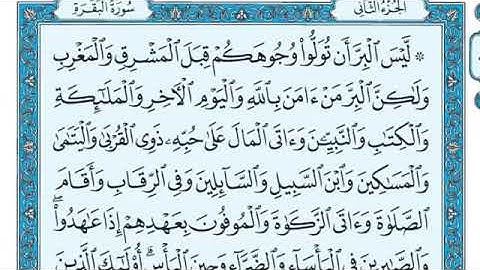 سُورَةُ البَقَرَةِ الجُزءُ الثَّانِي
۞ لَّيْسَ ٱلْبِرَّ أَن تُوَلُّوا۟ وُجُوهَكُمْ قِبَلَ ٱلْمَشْرِقِ وَٱلْمَغْرِبِ
وَلَٰكِنَّ ٱلْبِرَّ مَنْ ءَامَنَ بِٱللَّهِ وَٱلْيَوْمِ ٱلْءَاخِرِ وَٱلْمَلَٰٓئِكَةِ
وَٱلْكِتَٰبِ وَٱلنَّبِيِّۦنَ وَءَاتَى ٱلْمَالَ عَلَىٰ حُبِّهِۦ ذَوِى ٱلْقُرْبَىٰ وَٱلْيَتَٰمَىٰ
وَٱلْمَسَٰكِينَ وَٱبْنَ ٱلسَّبِيلِ وَٱلسَّآئِلِينَ وَفِى ٱلرِّقَابِ وَأَقَامَ
ٱلصَّلَوٰةَ وَءَاتَى ٱلزَّكَوٰةَ وَٱلْمُوفُونَ بِعَهْدِهِمْ إِذَا عَٰهَدُوا۟ۖ
وَٱلصَّٰبِرِينَ فِى ٱلْبَأْسَآءِ وَٱلضَّرَّآءِ وَحِينَ ٱلْبَأْسِۗ أُو۟لَٰٓئِكَ ٱلَّذِينَ